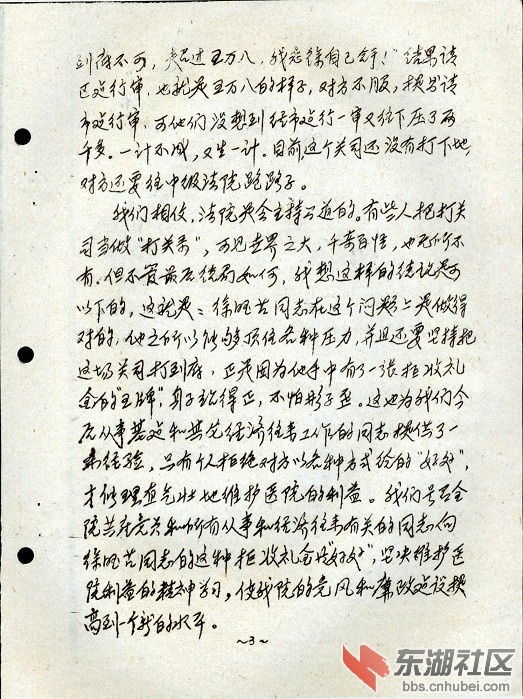 到底不可,超过五万八,我老徐自己拿!"结果请
区建行审,也就是五万八的样子,对方不服,接着请
市建行审,可他们没想到经市建行一审又往下压了两
千多。一计不成,又生一计。目前这个关司还没有打下地,
对方还要往中级法院跑路子。
我们相信,法院是会主持公道的。有些人把打关
司当做"打关系",可见世界之大,千奇百怪,也无所不
有。但不管最后结局如何,我想这样的结论是可
以下的,这就是:徐旺吉同志在这个问题上是做得
对的,他之所以能够顶住各种压力,并且还要坚持把
这场关司打到底,正是因为他手中有了一张拒收礼
金的"王牌",身子站得正,不怕影子歪。这也为我们今
后从事基建和其它经济往来工作的同志提供了一
条经验,只有个人拒绝对方以各种方式给的"好处",
才能理直气壮地维护医院的利益。我们号召全
院共产党员和所有从事和经济往来有关的同志向
徐旺吉同志的这种拒收礼金"好处",坚决维护医
院利益的精神学习,使我院的党风和廉政建设提
高到一个新的水平。
~3~
东湖社区
bbs.cnhubei.com